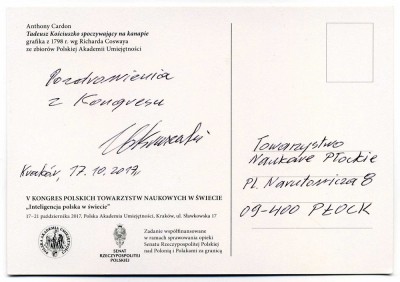 Anthony Cardon
Tadeusz Kościuszko spoczywający na kanapie
grafika z 1798 r. wg Richarda Coswaya
ze zbiorów Polskiej Akademii Umiejętności
Pozdrowienia
z Kongresu
Kraków, 17.10.2017
V KONGRES POLSKICH TOWARZYSTW NAUKOWYCH W ŚWIECIE
„Inteligencja polska w świecie”
17–21 października 2017, Polska Akademia Umiejętności, Kraków, ul. Sławkowska 17
SENAT
RZECZYPOSPOLITEJ
POLSKIEJ
Zadanie współfinansowane
w ramach sprawowania opieki
Senatu Rzeczypospolitej Polskiej
nad Polonią i Polakami za granicą
Towarzystwo
Naukowe Płockie
Pl. Narutowicza 8
09-400 PŁOCK